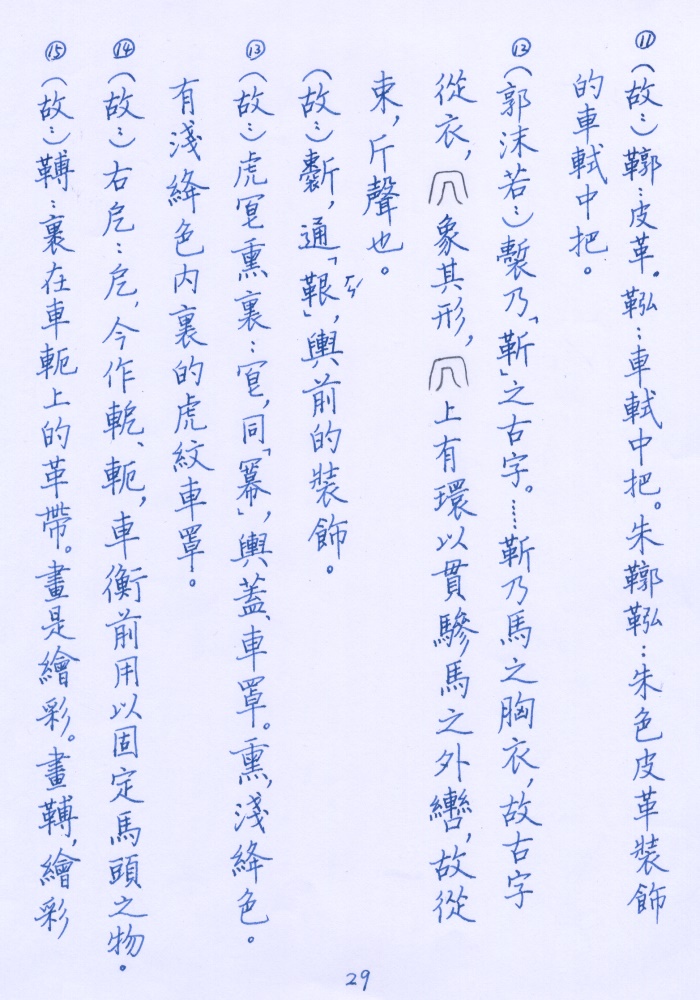 ⑪(故：)鞹：皮革。鞃：車軾中把。朱鞹鞃：朱色皮革裝飾
的車軾中把。
⑫(郭沫若：)㯼乃「靳」之古字。……靳乃馬之胸衣，故古字
從衣，象其形，上有環以貫驂馬之外轡，故從
束，斤聲也。
(故：)，通「鞎」ㄣˊ，輿前的裝飾。
⑬(故：)虎冟熏裏：冟，同「冪」，輿蓋、車罩。熏，淺絳色。
有淺絳色內裏的虎紋車罩。
⑭(故：)右戹：戹，今作軶、軛，車衡前用以固定馬頭之物。
⑮(故：)轉：裹在車軛上的革帶。畫是繪彩。畫轉，繪彩
29